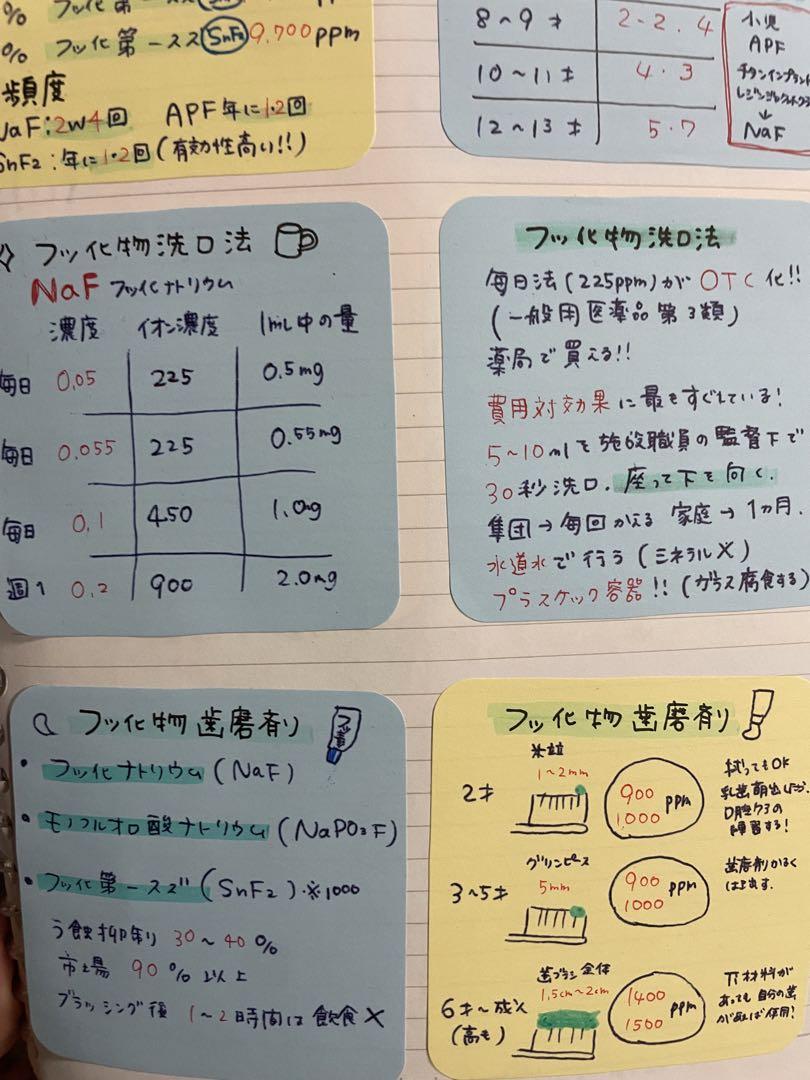 % フッ化第一スズ SnF2 9,700ppm
頻度
NaF:2w4回 APF年に1・2回
SnF2:年に1・2回(有効性高い!!)
8~9才 2・2.4
10~11才 4・3
12~13才 5・7
小児
APF
チタンインプラント
↓
NaF
フッ化物洗口法
NaF フッ化ナトリウム
濃度 イオン濃度 1mL中の量
毎日 0.05 225 0.5mg
毎日 0.055 225 0.55mg
毎日 0.1 450 1.0mg
週1 0.2 900 2.0mg
フッ化物洗口法
毎日法(225ppm)がOTC化!!
(一般用医薬品第3類)
薬局で買える!!
費用対効果に最もすぐれている!
5~10mlを施設職員の監督下で
30秒洗口.座って下を向く.
集団→毎回かえる 家庭→1ヵ月.
水道水で行う(ミネラル×)
プラスチック容器!!(ガラス腐食する)
フッ化物歯磨剤
・フッ化ナトリウム(NaF)
・モノフルオロ酸ナトリウム(NaPO2F)
・フッ化第一スズ(SnF2)※1000
う蝕抑制 30~40%
市場 90%以上
ブラッシング後 1~2時間は飲食×
フッ化物歯磨剤
米粒
1~2mm
2才 900 1,000 ppm
拭ってもOK
乳歯萌出したら、
口腔ケアの
練習する!
グリンピース
5mm
3~5才 900 1000 ppm
歯磨剤かるく
はき出す.
歯ブラシ全体
1.5cm~2cm
6才~成人 1400 1500 ppm
(高も)
Ti材料が
あっても自分の歯
があれば使用!